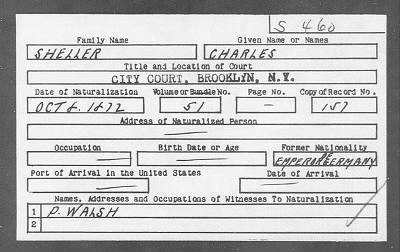 S 460
Family Name Given Name or Names
SHELLER CHARLES
Title and Location of Court
CITY COURT, BROOKLYN, N.Y.
Date of Naturalization Volume or Bundle No. Page No. Copy of Record No.
OCT 8. 1872 51 — 157
Address of Naturalized Person
—
Occupation Birth Date or Age Former Nationality
— — EMPEROR OF GERMANY
Port of Arrival in the United States Date of Arrival
— —
Names, Addresses and Occupations of Witnesses To Naturalization
1 P. WALSH
2